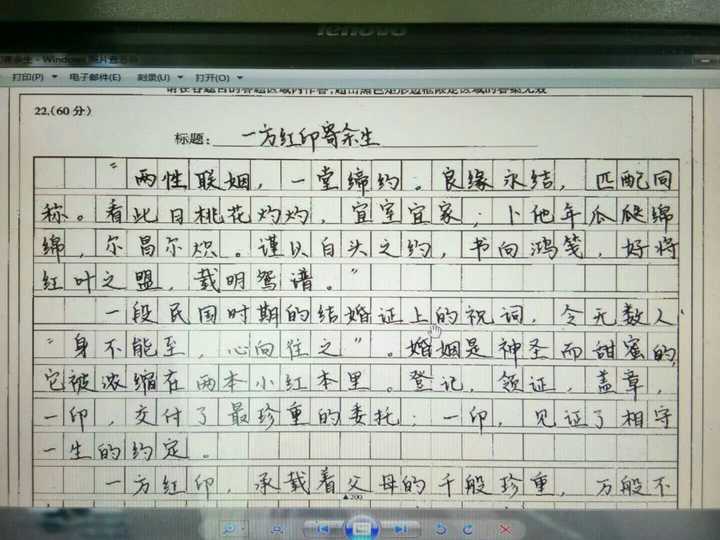 lenovo
打印(P) 电子邮件(E) 刻录(U) 打开(O)
请在各题目的答题区域内作答,超出黑色矩形边框限定区域的答案无效
22.(60分)
标题: 一方红印寄余生
“两性联姻，一堂缔约。良缘永结，匹配同
称。看此日桃花灼灼，宜室宜家；卜他年瓜瓞绵
绵，尔昌尔炽。谨以白头之约，书向鸿笺，好将
红叶之盟，载明鸳谱。”
一段民国时期的结婚证上的祝词，令无数人
“身不能至，心向往之”。婚姻是神圣而甜蜜的，
它被浓缩在两本小红本里。登记，领证，盖章，
一印，交付了最珍重的委托；一印，见证了相守
一生的约定。
一方红印，承载着父母的千般珍重，万般不
▲200